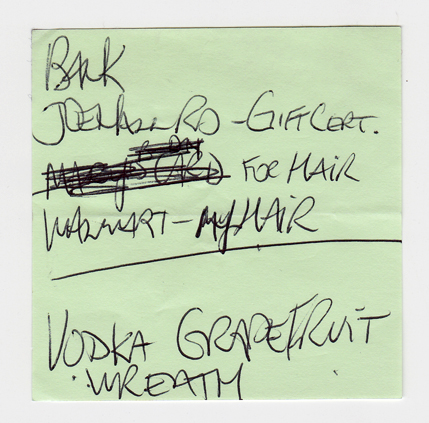 BANK
RD - GIFT CERT.
CARD FOR HAIR
WALMART - MY HAIR
VODKA GRAPEFRUIT
WREATH